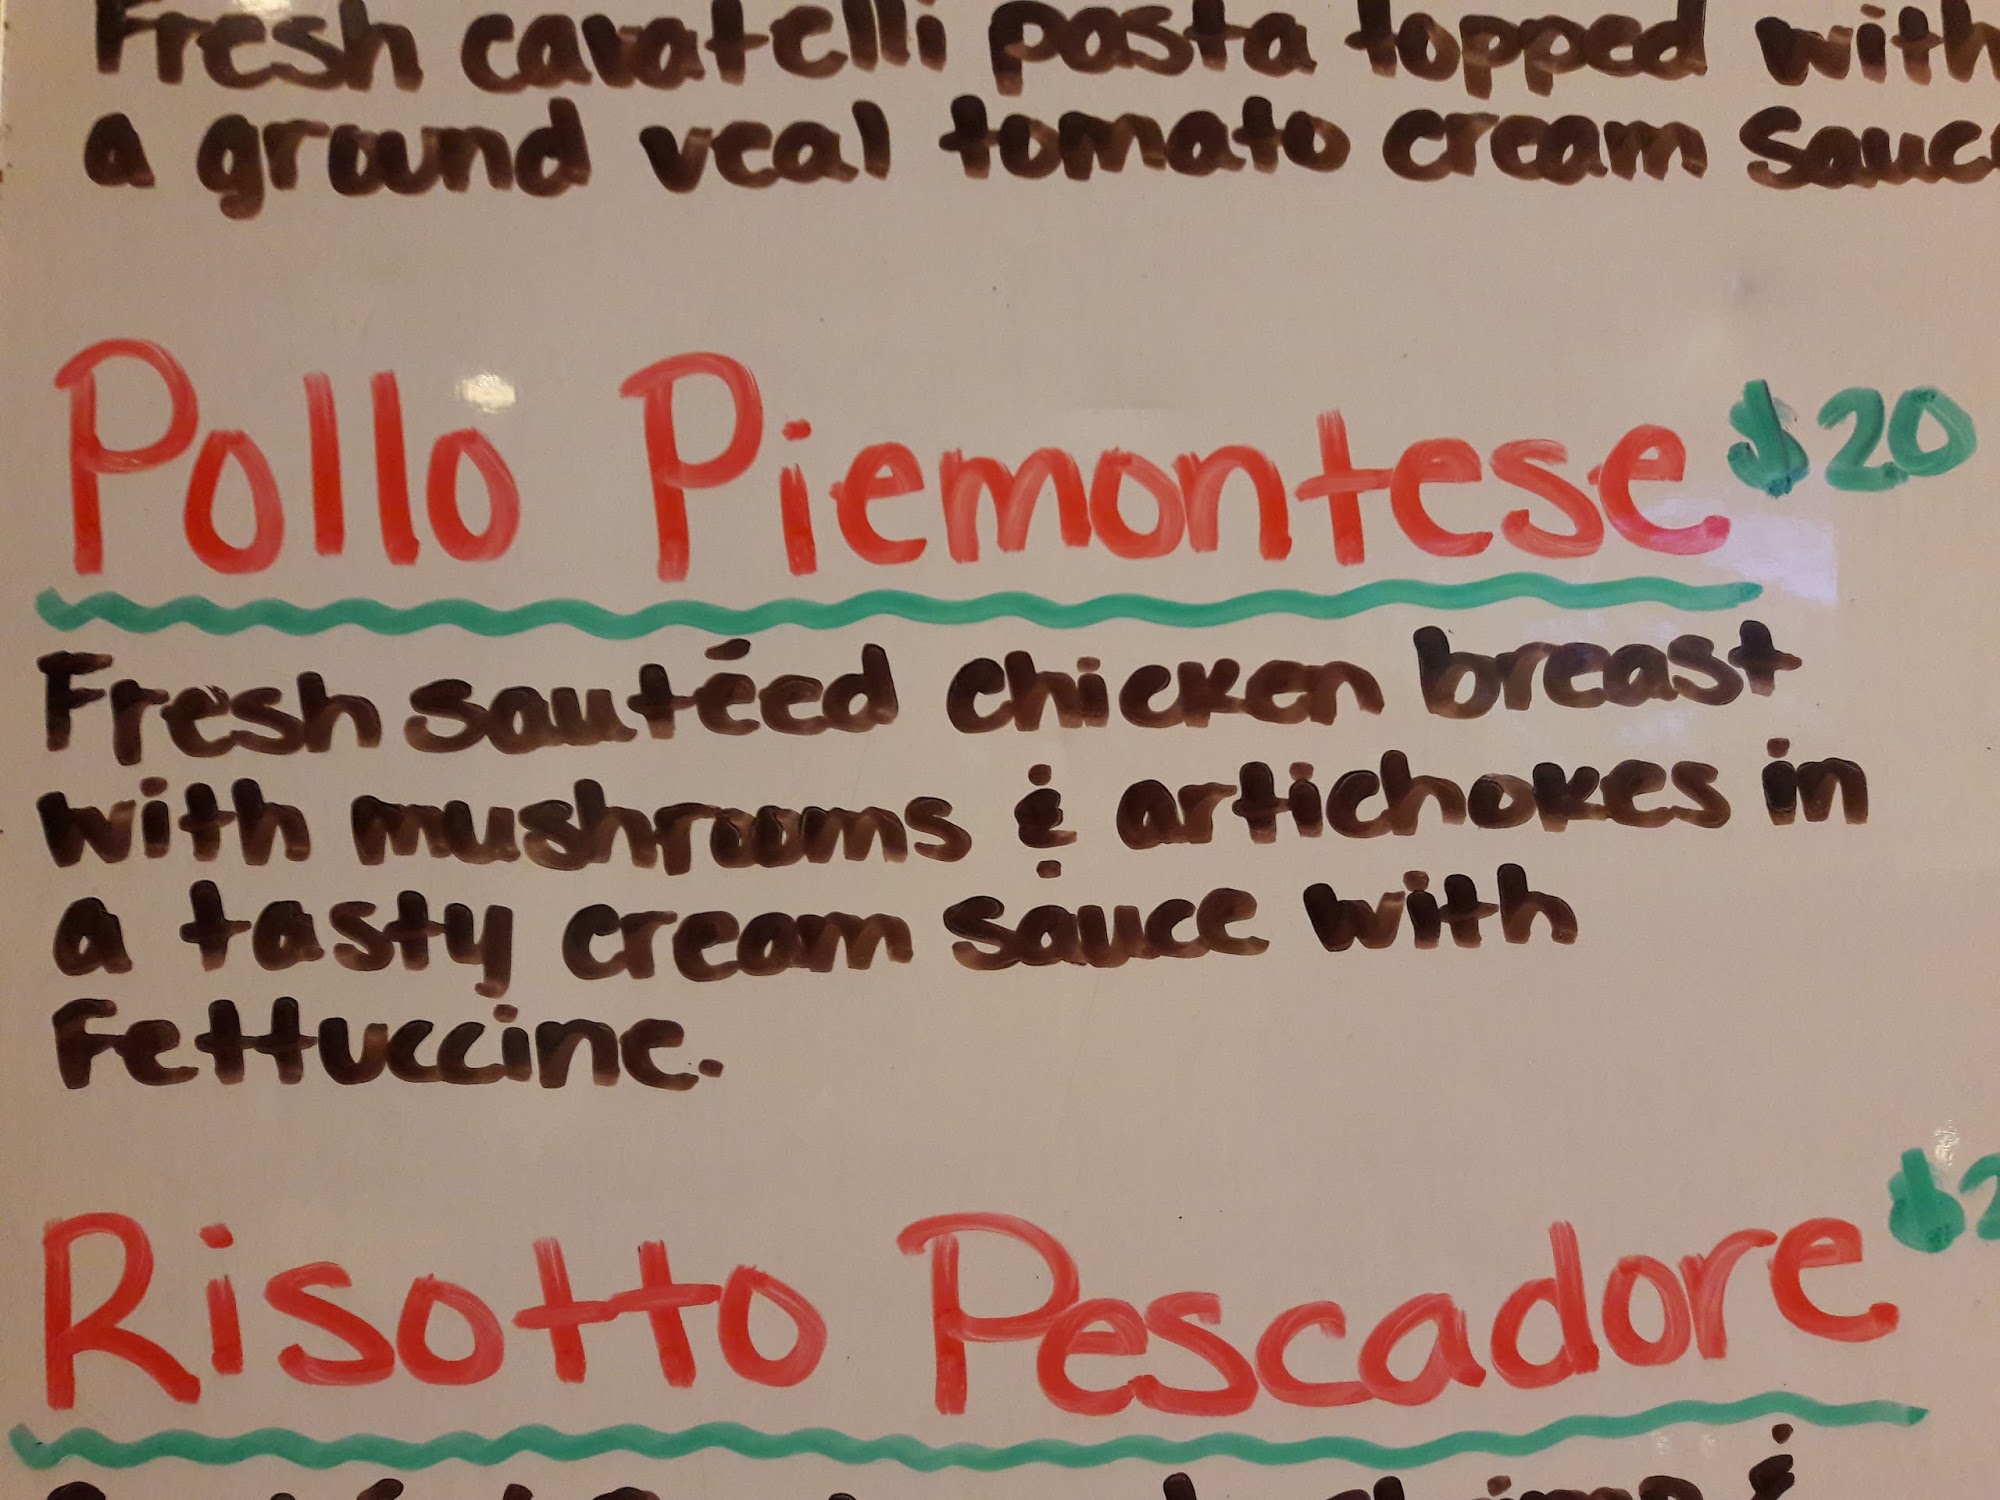 Fresh cavatelli pasta topped with
a ground veal tomato cream sauce
Pollo Piemontese $20
Fresh sautéed chicken breast
with mushrooms & artichokes in
a tasty cream sauce with
Fettuccine.
Risotto Pescadore $2
&